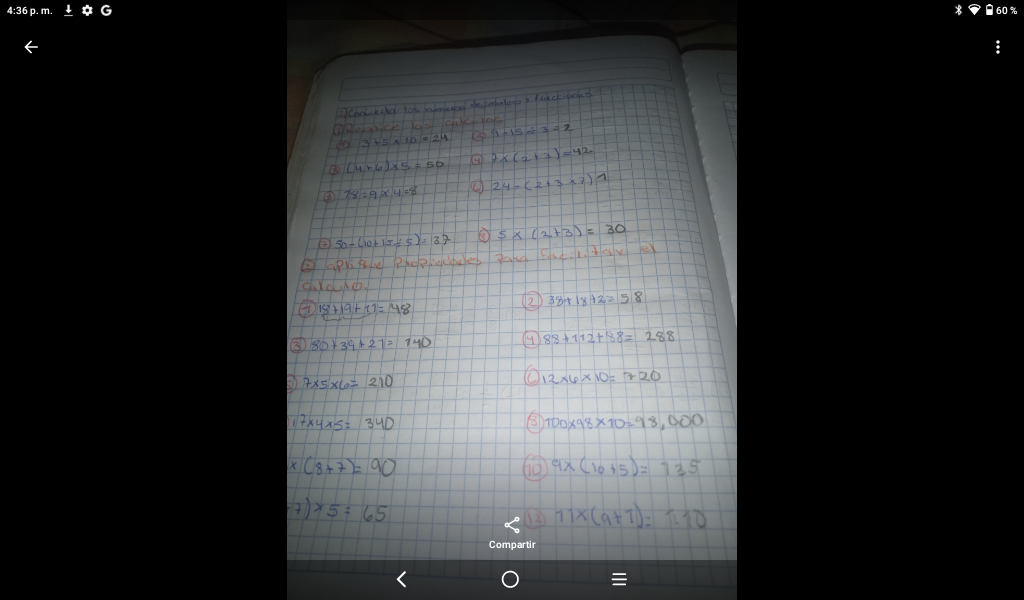 4:36 p. m.
60 %
Resuelve los cálculos
① 3+5×10=24 ② 9+15÷3=2
③ (4+6)×5=50 ④ 7×(2+3)=42
⑤ 78÷9×4=8 ⑥ 24-(2+3×7) 1
⑦ 50-(10+15÷5)=37 ⑧ 5×(2+3)= 30
② aplique Propiedades Para facilitar el
calculo.
① 18+19+11=48 ② 38+18+2=58
③ 80+39+21= 140 ④ 88+112+88= 288
7×5×6= 210 ⑥ 12×6×10=720
17×4×5= 340 ⑧ 100×98×10=98,000
×(8+7)= 90 ⑩ 9×(10+5)= 135
7)×5= 65 11×(9+1)= 110
Compartir